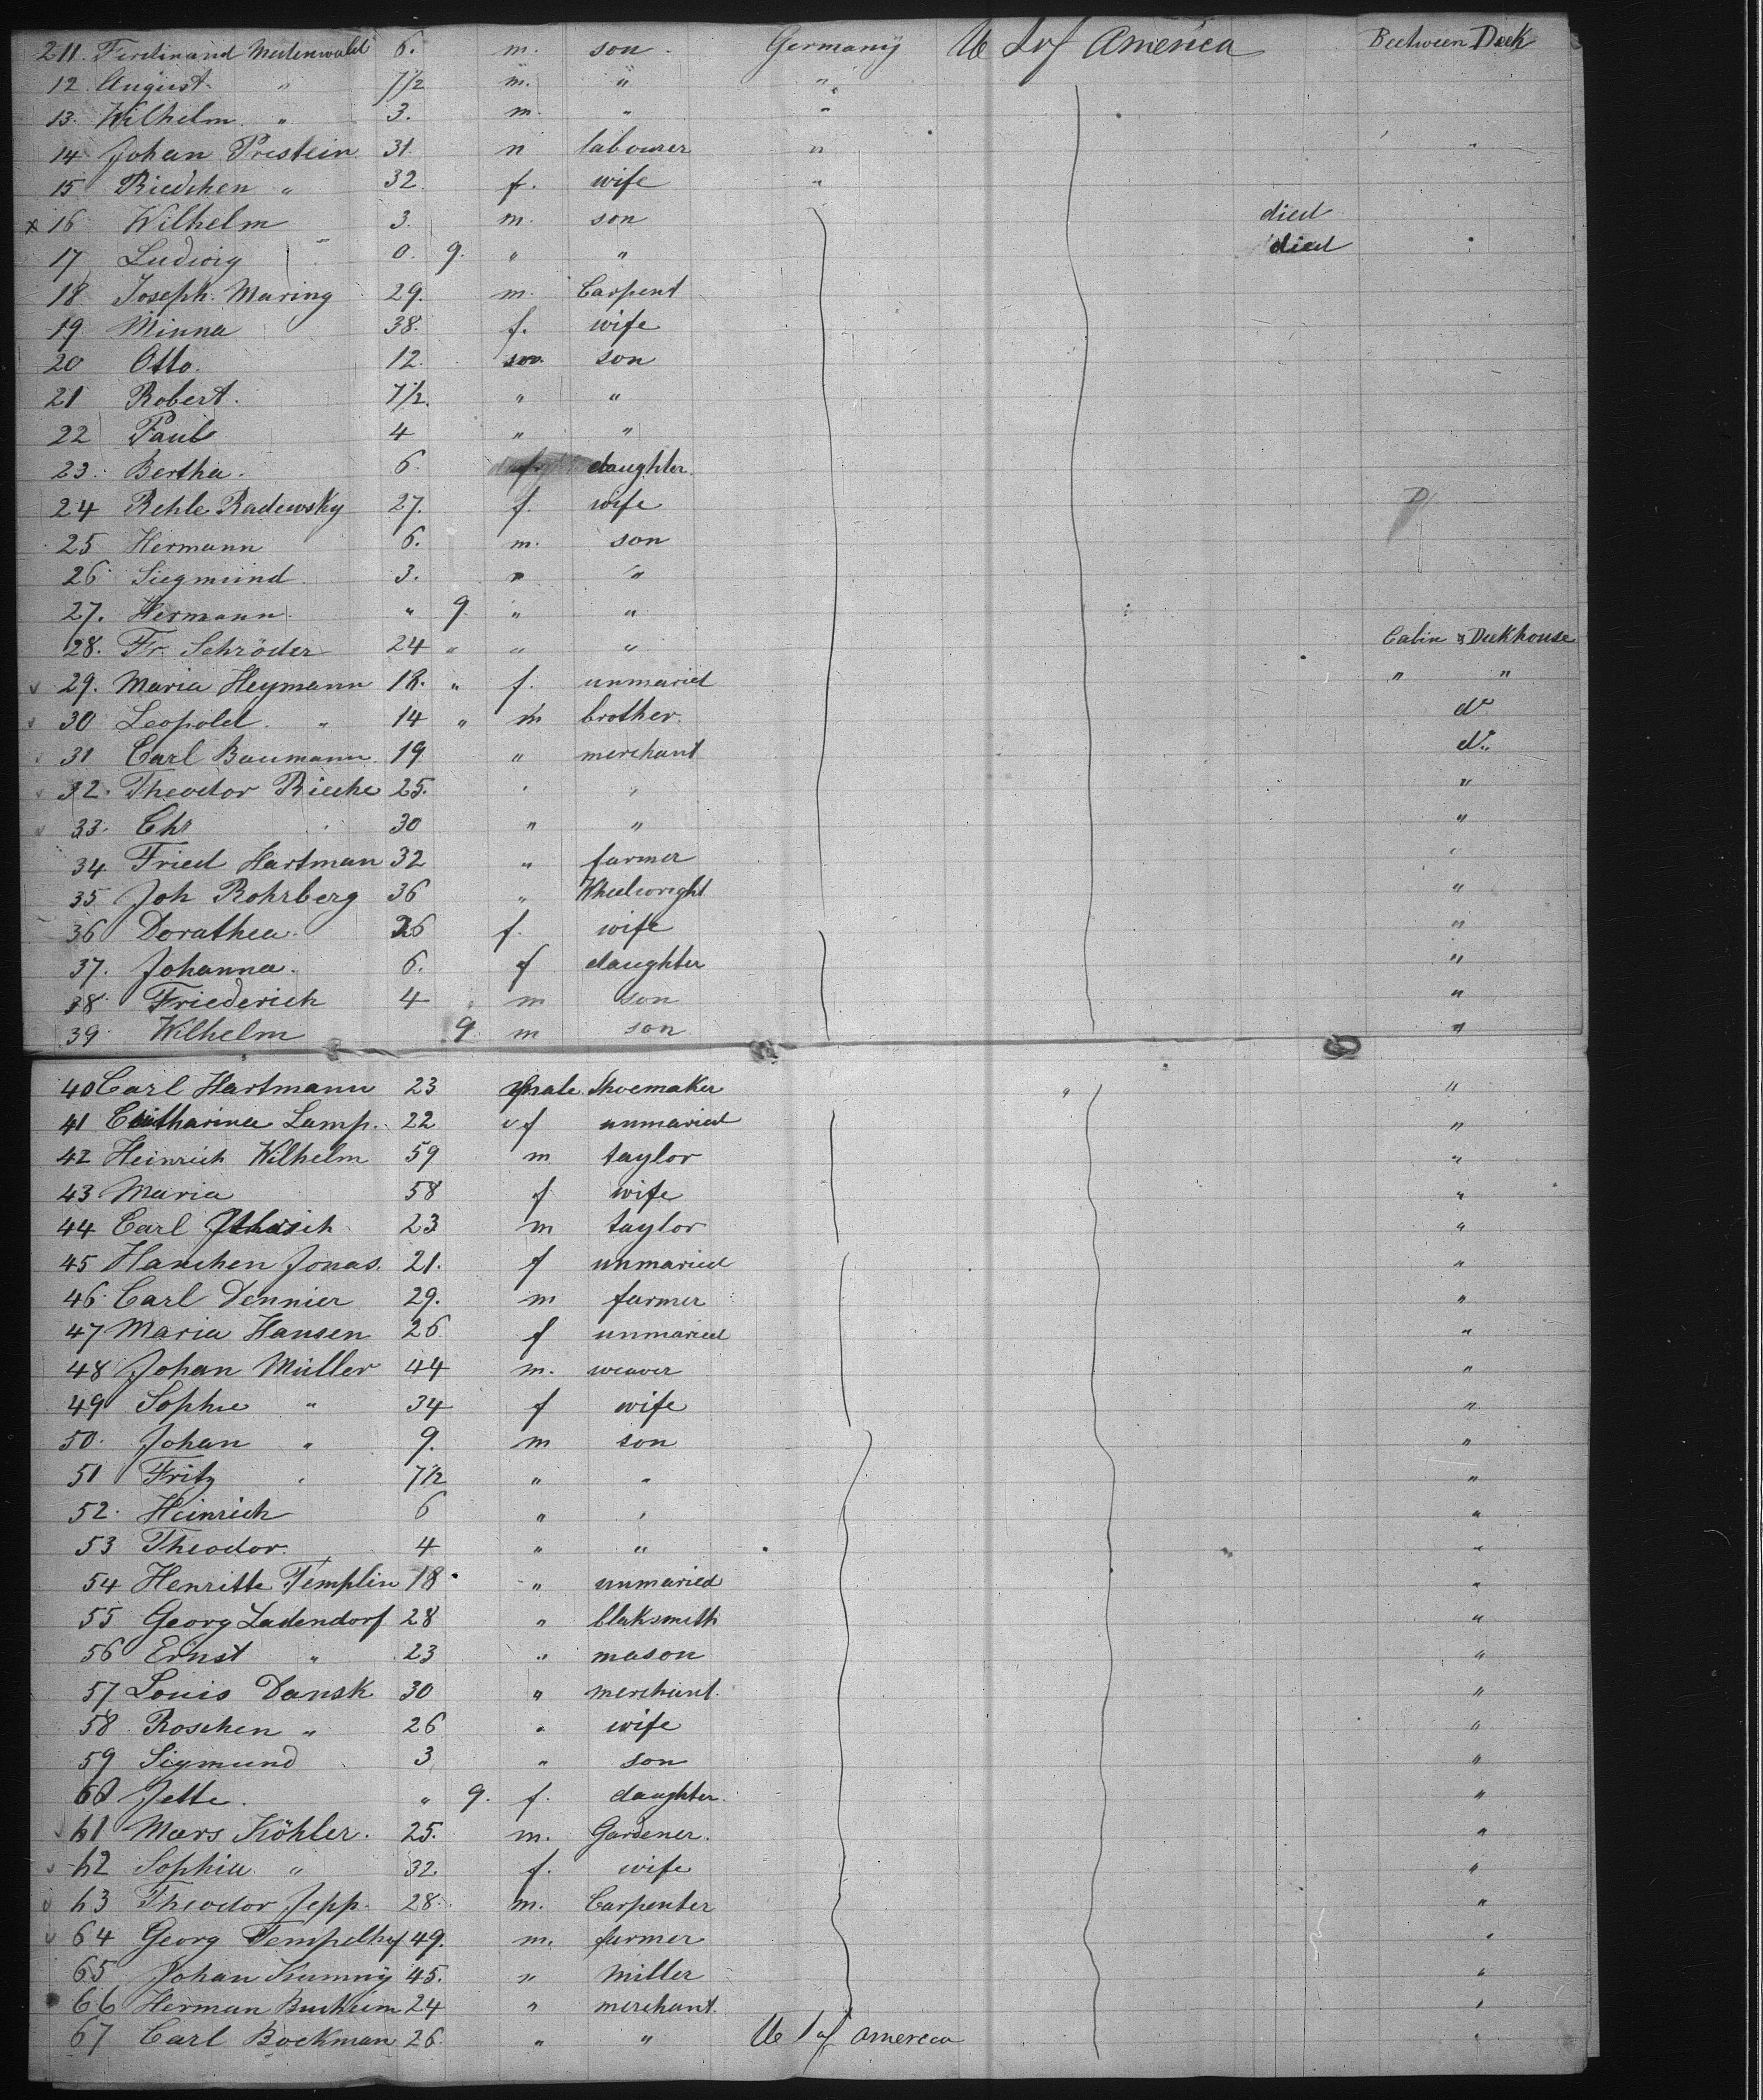 211. Ferdinand Meitenwald 6. m. son. Germany U S of America Beetween Deck
12. August. " 7 1/2 m. " "
13. Wilhelm " 3. m. " "
14 Johan Prestein 31. m labourer "
15 Riedchen " 32. f. wife "
x 16 Wilhelm 3. m. son died
17 Ludwig " 0. 9. " " died "
18 Joseph Maring 29. m. Carpent
19 Minna 38. f. wife
20 Otto. 12. son son
21 Robert. 7 1/2. " "
22 Paul 4 " "
23. Bertha. 6. f. daughter.
24 Rehle Radewsky 27. f. wife
25 Hermann 6. m. son
26 Siegmund 3. " "
27. Hermann. " 9. " "
28. Fr. Schröder 24 " " " Cabin & Deckhouse
v 29. Maria Heymann 18. " f. unmaried " "
v 30 Leopold. " 14 " m brother. do
v 31 Carl Baumann 19. " merchant do.
v 32. Theodor Rieche 25. " " "
v 33. Chr " 30 " " "
34 Fried Hartman 32 " farmer "
35 Joh Rohrberg 36 " Wheelwright "
36 Dorathea. 26 f. wife "
37. Johanna. 6. f daughter "
38. Friederich 4 m son "
39. Wilhelm 9 m son "
40 Carl Hartmann 23 male Shoemaker " "
41 Catharina Lamp. 22 f unmaried "
42 Heinrich Wilhelm 59 m taylor "
43 Maria 58 f wife "
44 Carl 23 m taylor "
45 Hanchen Jonas. 21. f unmaried "
46. Carl Dennier 29. m farmer "
47 Maria Hansen 26 f unmaried "
48 Johan Müller 44 m. weaver "
49 Sophie " 34 f wife "
50. Johan " 9. m son "
51 Fritz " 7 1/2 " " "
52. Heinrich 6 " " "
53 Theodor. 4 " " "
54 Henritte Templin 18 " unmaried "
55 Georg Ladendorf 28 " blaksmith "
56 Ernst " 23 " mason "
57 Louis Dansk 30 " merchant. "
58. Roschen " 26 " wife "
59 Sigmund 3 " son "
60 Jette. " 9. f. daughter. "
v 61 Mars Köhler. 25. m. Gardener. "
v 62 Sophia " 32 f. wife "
v 63 Theodor Jepp. 28. m. Carpenter "
v 64 Georg Tempelhof 49. m. farmer "
65 Johan Kumniy 45. " Miller "
66 Herman Burheim 24 " merchant. "
67 Carl Bockman 26. " " U S of America "